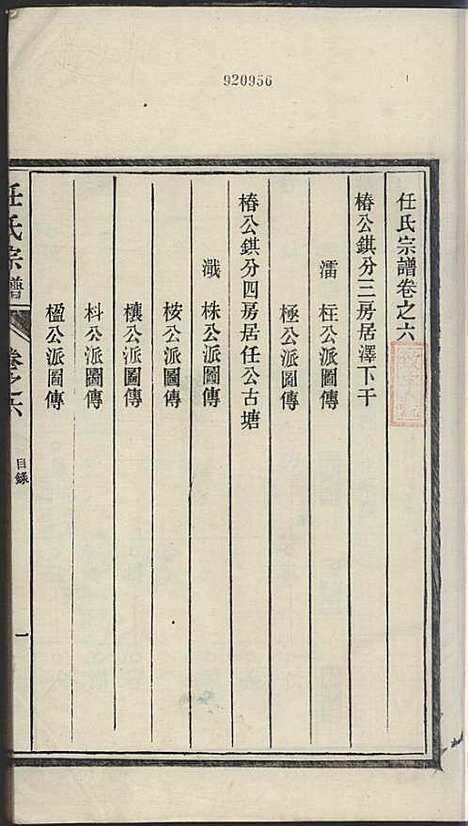 920956
任氏宗譜卷之六
椿公錤分三房居澤下干
澑 枉公派圖傳
極公派圖傳
椿公錤分四房居任公古塘
濈 株公派圖傳
桉公派圖傳
欀公派圖傳
枓公派圖傳
楹公派圖傳
任氏宗譜 卷之六 目錄 一